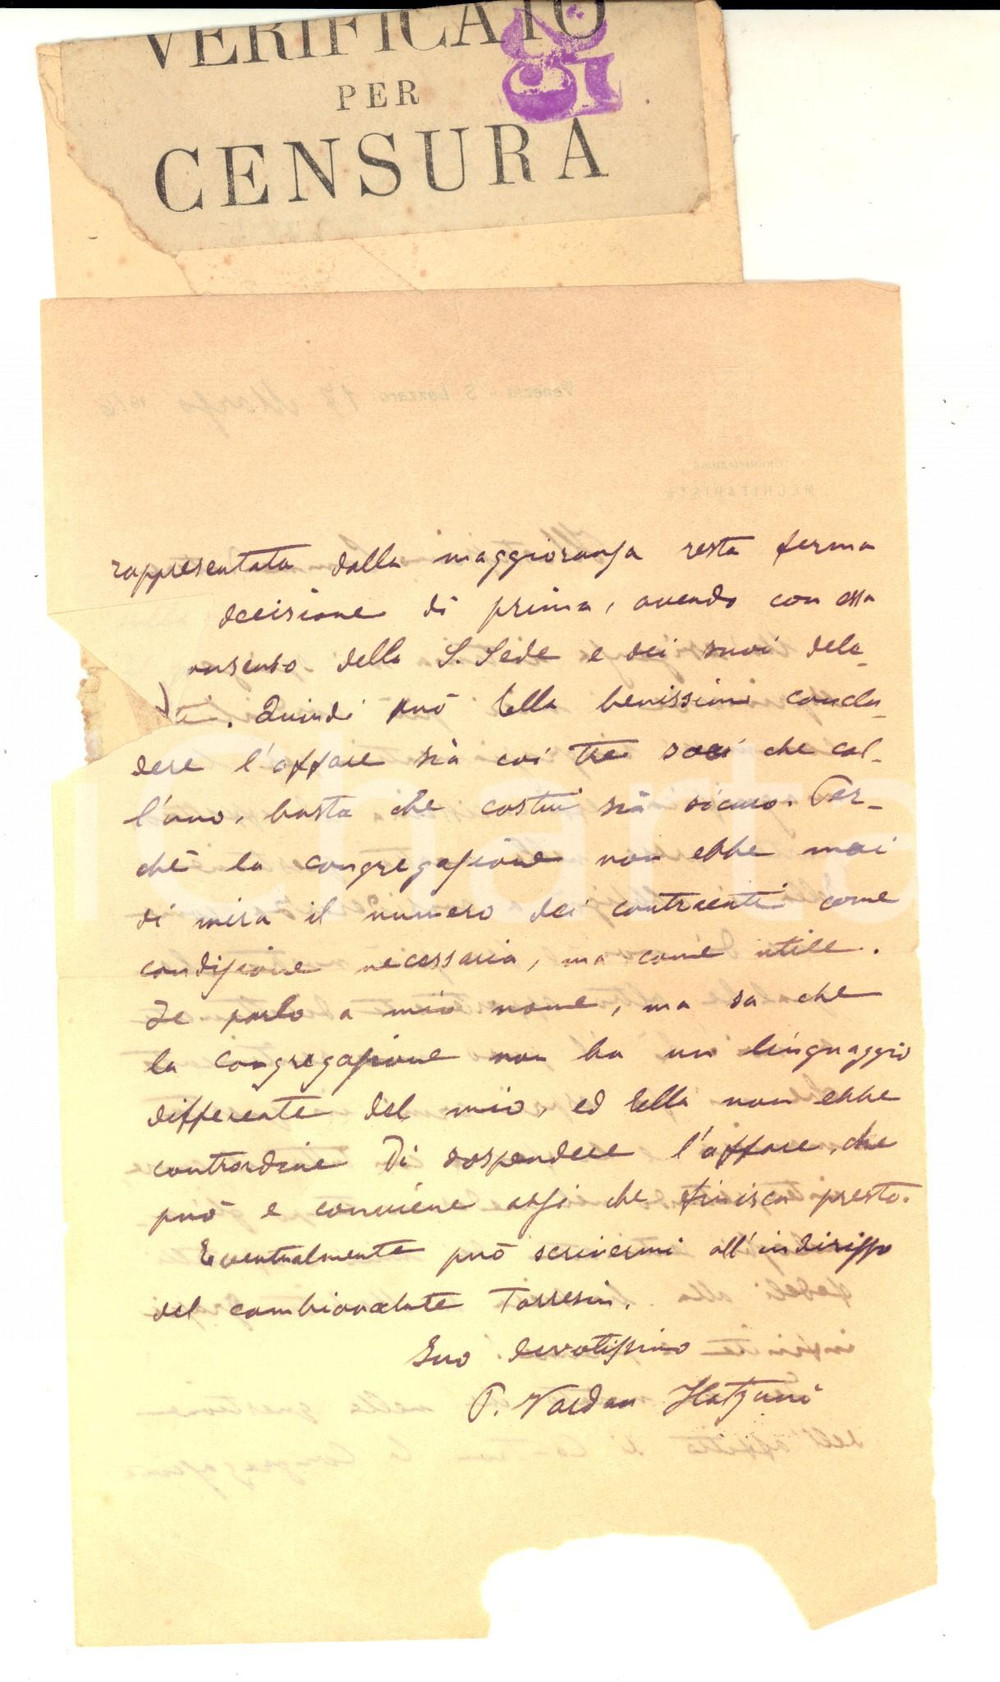 VERIFICATO
PER
CENSURA
rappresentata dalla maggioranza resta ferma
decisione di prima, avendo con essa
onsenso della S. Sede e dei suoi dele-
ti. Quindi può Ella benissimo conclu-
dere l'affare sia coi tre soci che col-
l'uno, basta che costui sia sicuro. Per-
chè la congregazione non ebbe mai
di mira il numero dei contraenti come
condizione necessaria, ma come utile.
Le parlo a mio nome, ma sa che
la Congregazione non ha un linguaggio
differente del mio, ed Ella non ebbe
contrordine di sospendere l'affare, che
può e conviene anzi che finisca presto.
Eventualmente può scrivermi all'indirizzo
del cambiovalute Torresin.
Suo devotissimo
P. Vardan Hatzuni
Venezia S. Lazzaro 17 Marzo